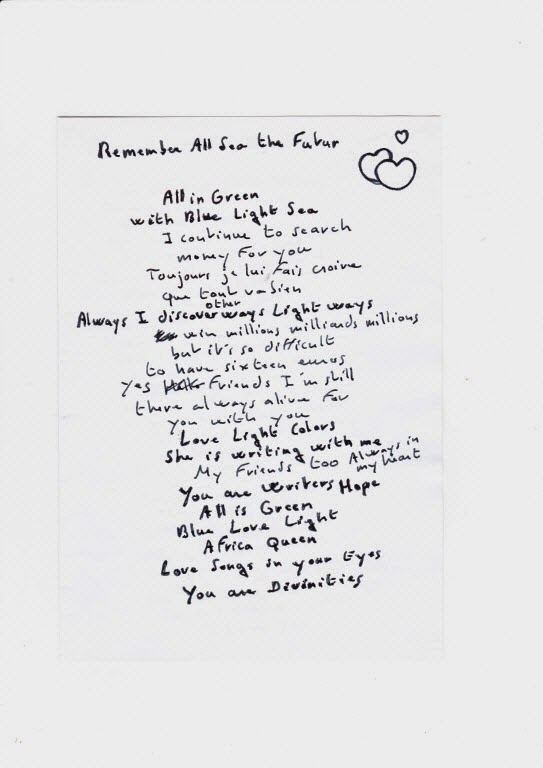 Remember All Sea the Futur
All in Green
with Blue Light Sea
I continue to search
money For you
Toujours je lui Fais croire
que tout va bien
other
Always I discover ways Light ways
win millions milliards millions
but it's so difficult
to have sixteen euros
Yes Friends I'm still
there always alive For
you with you
Love Light Colors
She is writing with me
My Friends too Always in
my heart
You are Writers Hope
All is Green
Blue Love Light
Africa Queen
Love Songs in your Eyes
You are Divinities